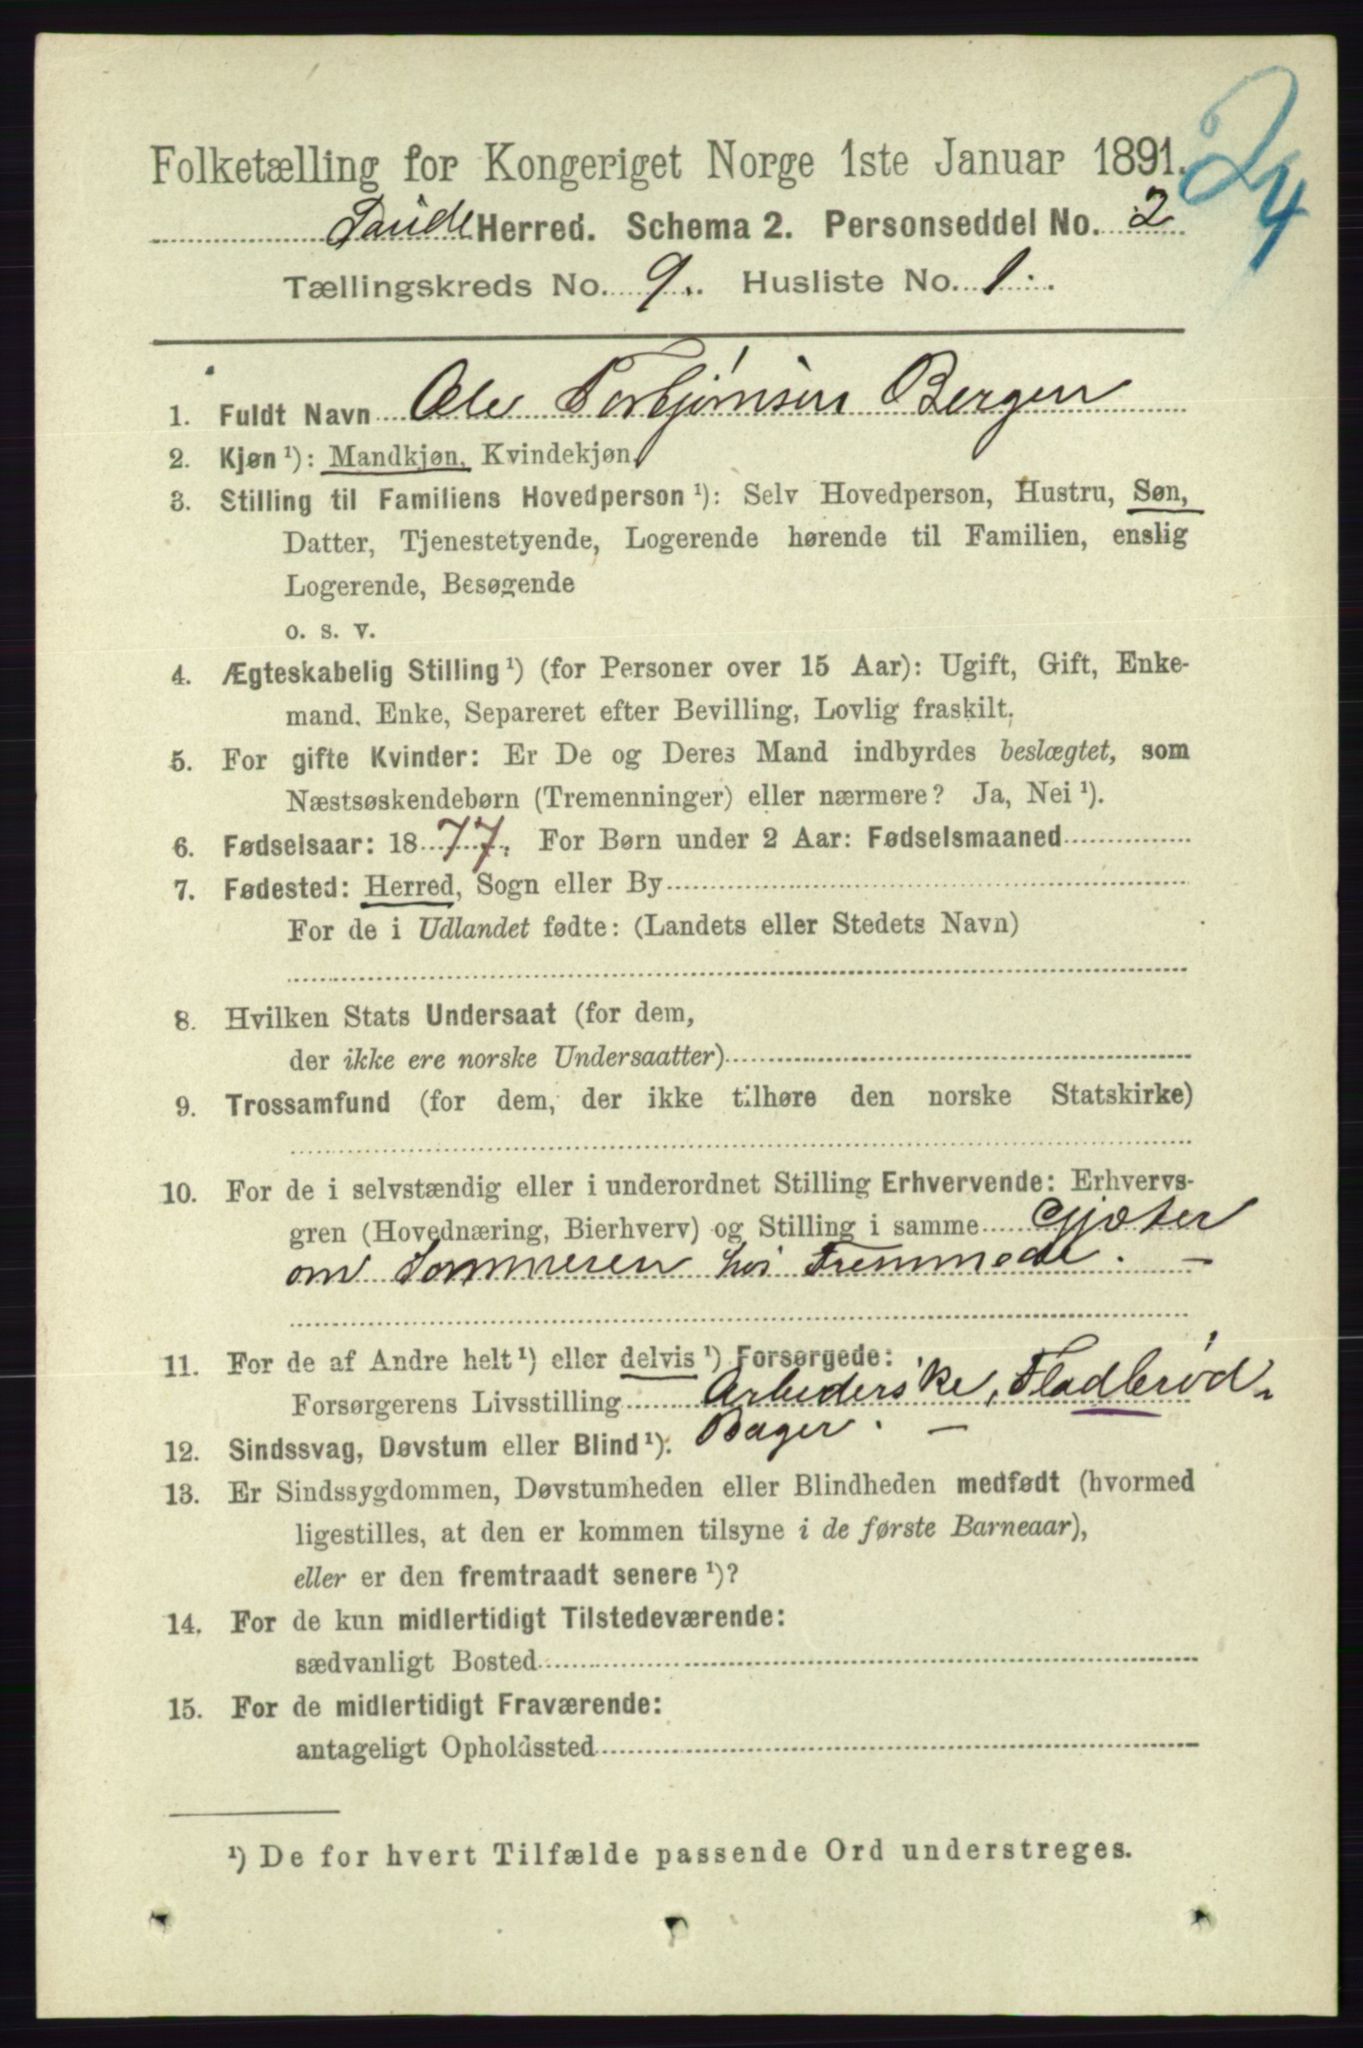 24
Folketælling for Kongeriget Norge 1ste Januar 1891.
Saude Herred. Schema 2. Personseddel No. 2
Tællingskreds No. 9. Husliste No. 1.
1. Fuldt Navn Ole Torbjørnsen Bergen
2. Kjøn ¹): Mandkjøn, Kvindekjøn.
3. Stilling til Familiens Hovedperson ¹): Selv Hovedperson, Hustru, Søn,
Datter, Tjenestetyende, Logerende hørende til Familien, enslig
Logerende, Besøgende
o. s. v.
4. Ægteskabelig Stilling ¹) (for Personer over 15 Aar): Ugift, Gift, Enke-
mand, Enke, Separeret efter Bevilling, Lovlig fraskilt.
5. For gifte Kvinder: Er De og Deres Mand indbyrdes beslægtet, som
Næstsøskendebørn (Tremenninger) eller nærmere? Ja, Nei ¹).
6. Fødselsaar: 1877. For Børn under 2 Aar: Fødselsmaaned
7. Fødested: Herred, Sogn eller By
For de i Udlandet fødte: (Landets eller Stedets Navn)
8. Hvilken Stats Undersaat (for dem,
der ikke ere norske Undersaatter)
9. Trossamfund (for dem, der ikke tilhøre den norske Statskirke)
10. For de i selvstændig eller i underordnet Stilling Erhvervende: Erhvervs-
gren (Hovednæring, Bierhverv) og Stilling i samme Gjæter
om Sommeren hos Fremmede. —
11. For de af Andre helt ¹) eller delvis ¹) Forsørgede:
Forsørgerens Livsstilling Arbeiderske, Fladbrød-
Bager. —
12. Sindssvag, Døvstum eller Blind ¹).
13. Er Sindssygdommen, Døvstumheden eller Blindheden medfødt (hvormed
ligestilles, at den er kommen tilsyne i de første Barneaar),
eller er den fremtraadt senere ¹)?
14. For de kun midlertidigt Tilstedeværende:
sædvanligt Bosted
15. For de midlertidigt Fraværende:
antageligt Opholdssted
¹) De for hvert Tilfælde passende Ord understreges.